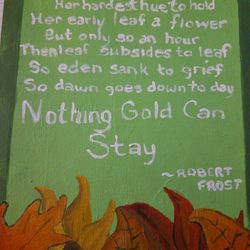 Her hardest hue to hold
Her early leaf a flower
But only so an hour
Then leaf subsides to leaf
So eden sank to grief
So dawn goes down to day
Nothing Gold Can
Stay
~ROBERT
FROST